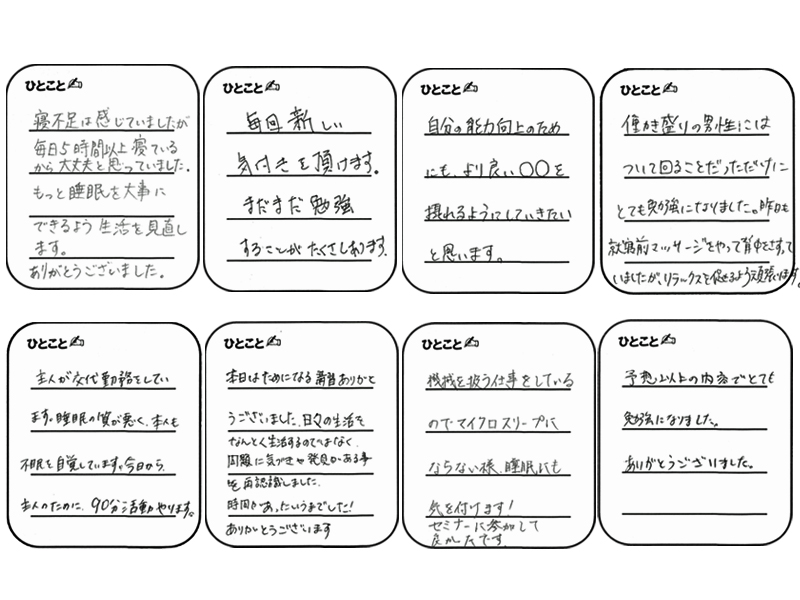 ひとこと
寝不足は感じていましたが
毎日5時間以上寝ている
から大丈夫と思っていました。
もっと睡眠を大事に
できるよう生活を見直し
ます。
ありがとうございました。
ひとこと
毎回新しい
気付きを頂けます。
まだまだ勉強
することがたくさんあります。
ひとこと
自分の能力向上のため
にも、より良い〇〇を
摂れるようにしていきたい
と思います。
ひとこと
働き盛りの男性には
ついて回ることだっただけに
とても勉強になりました。昨日も
就寝前マッサージをやって背中をさすって
いましたが、リラックスを促せるよう頑張ります。
ひとこと
主人が交代勤務をしてい
ます。睡眠の質が悪く、本人も
不眠を自覚しています。今日から、
主人のために、90分活動やります。
ひとこと
本日はためになる講習ありがと
うございました。日々の生活を
なんとく生活するのではなく、
問題に気づきや発見がある事
を再認識しました。
時間があっというまでした!
ありがとうございます
ひとこと
機械を扱う仕事をしている
のでマイクロスリープに
ならない様、睡眠にも
気を付けます!
セミナーに参加して
良かったです。
ひとこと
予想以上の内容でとても
勉強になりました。
ありがとうございました。